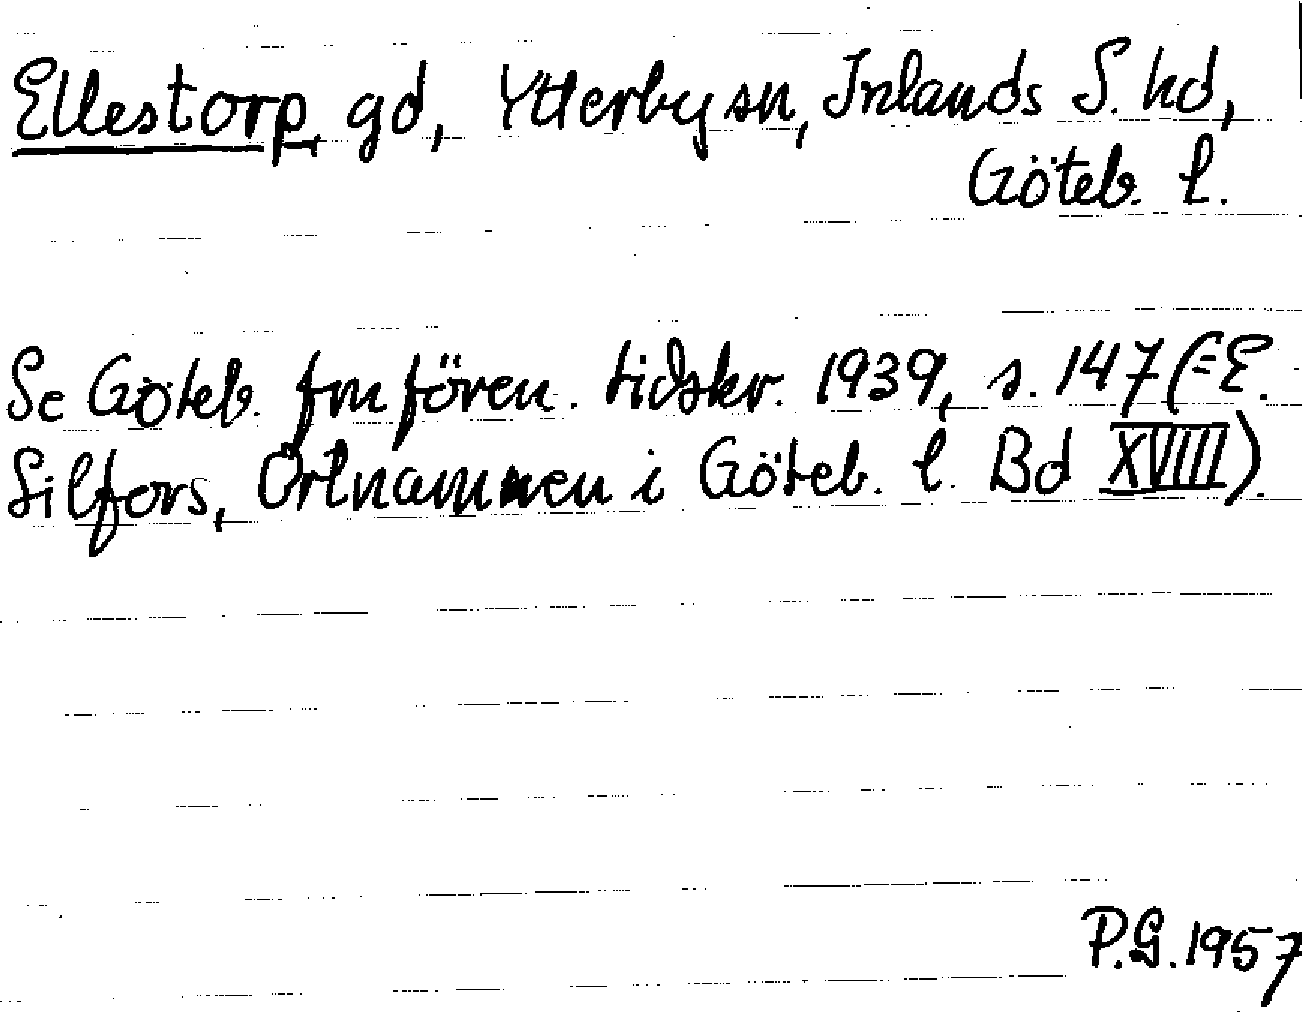 Ellestorp, gd, Ytterby sn, Inlands S. hd,
Göteb. l.
Se Göteb. fmfören. tidskr. 1939, s. 147 (= E.
Silfors, Ortnamnen i Göteb. l. Bd XVIII).
P.G. 1957